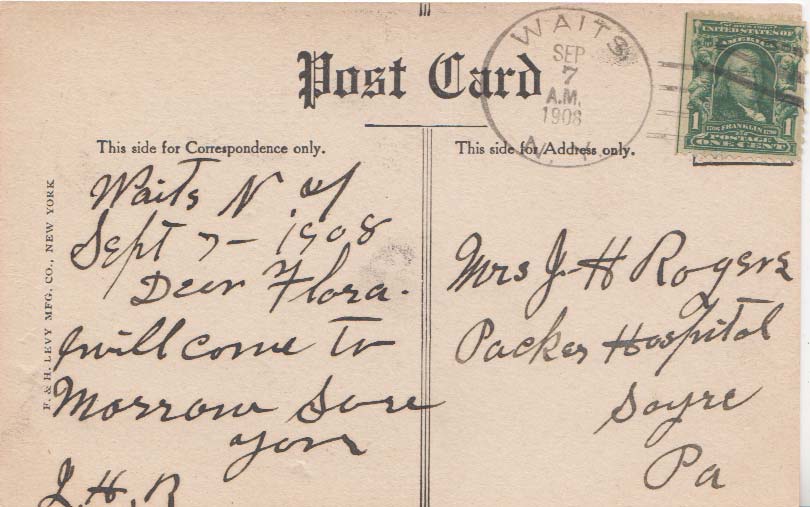 Post Card
WAITS
SEP
7
A.M.
1908
N.Y.
UNITED STATES OF
AMERICA
1 1
FRANKLIN
POSTAGE
ONE CENT
This side for Correspondence only.
This side for Address only.
F. & H. LEVY MFG. CO., NEW YORK
Waits N Y
Sept 7 - 1908
Dear Flora.
will come to
Morrow Sure
your
J. H. R
Mrs J. H Rogers
Packer Hospital
Sayre
Pa